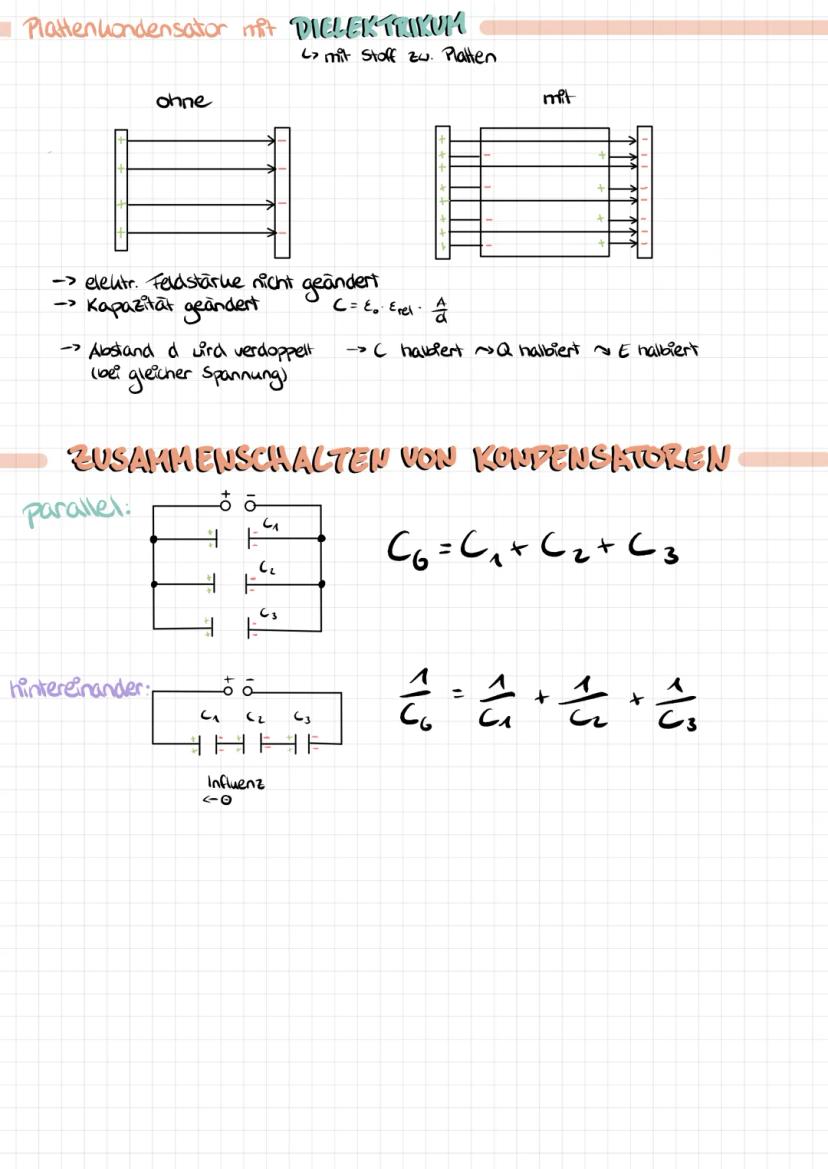 Plattenkondensator mit DIELEKTRIKUM
↳ mit Stoff zw. Platten
ohne
mit
-> elektr. Feldstärke nicht geändert
-> Kapazität geändert C = ε₀ · ε_rel · A/d
-> Abstand d wird verdoppelt -> C halbiert ~> Q halbiert ~> E halbiert
(bei gleicher Spannung)
ZUSAMMENSCHALTEN VON KONDENSATOREN
parallel:
+ -
C₁
C₂
C₃
C_G = C₁ + C₂ + C₃
hintereinander:
+ -
C₁ C₂ C₃
1/C_G = 1/C₁ + 1/C₂ + 1/C₃
Influenz
<-⊖